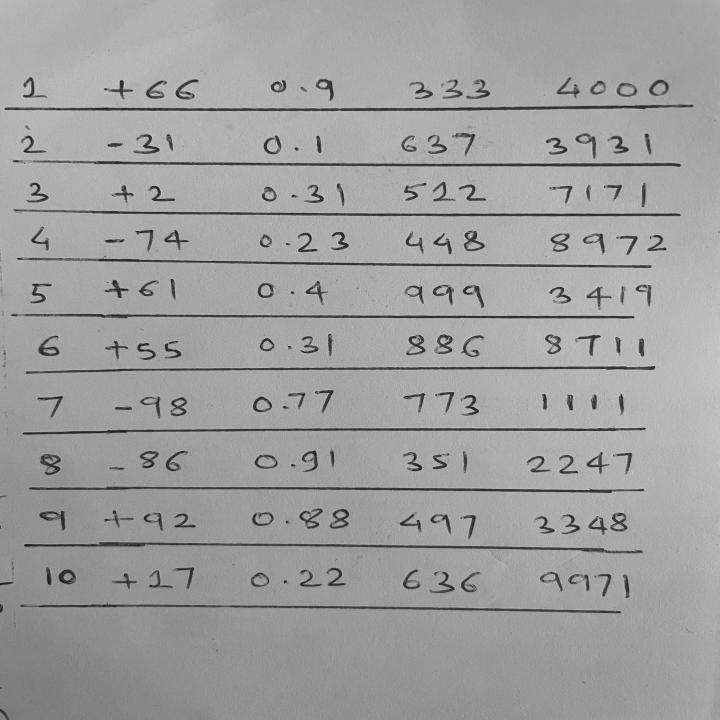 1 +66 0.9 333 4000
2 -31 0.1 637 3931
3 +2 0.31 512 7171
4 -74 0.23 448 8972
5 +61 0.4 999 3419
6 +55 0.31 886 8711
7 -98 0.77 773 1111
8 -86 0.91 351 2247
9 +92 0.88 497 3348
10 +17 0.22 636 9971